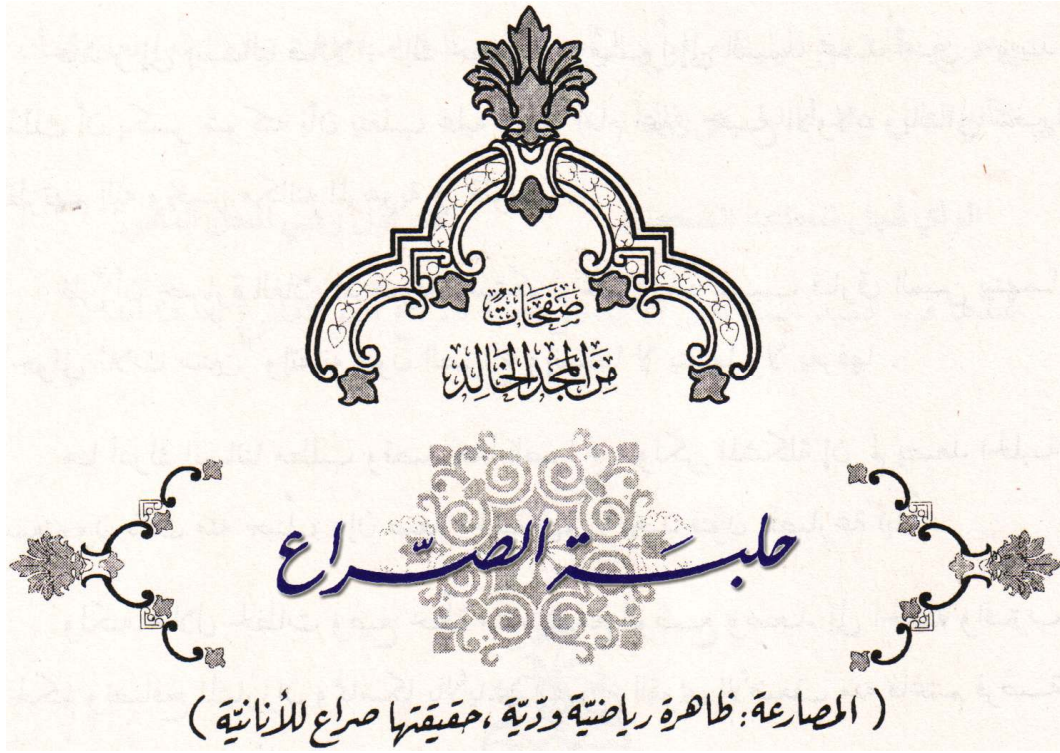 صَفَحَاتٌ
مِنَ المَجْدِ الخَالِد
حلبَة الصّراع
( المصارعة: ظاهرة رياضيّة ودّيّة ، حقيقتها صراع للأنانيّة )